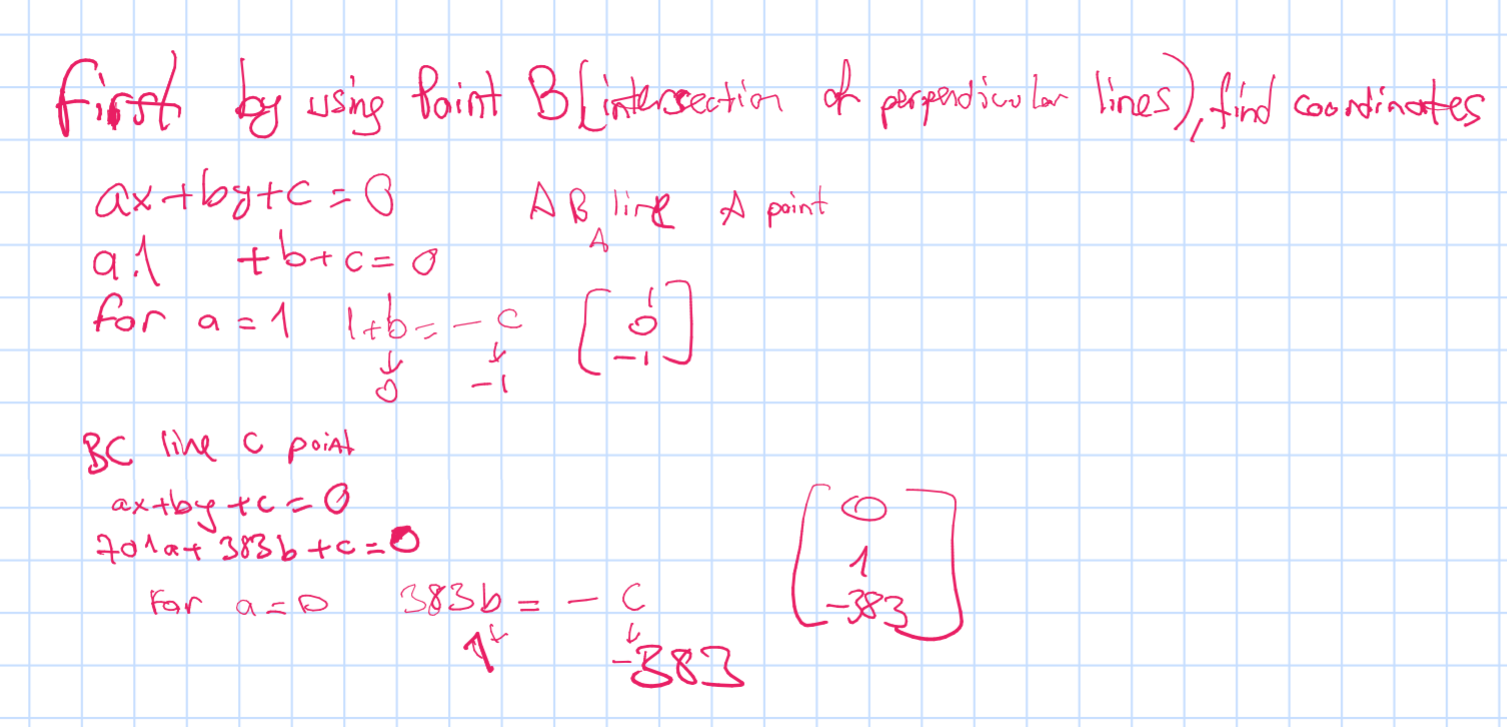 First by using Point B (intersection of perpendicular lines), find coordinates
ax+by+c=0 AB line A point
a.1 +b+c=0 A
for a=1 1+b=-c [1
0
-1]
0 -1
BC line C point
ax+by+c=0
701a+383b+c=0
For a=0 383b=-c
1 -383
[0
1
-383]